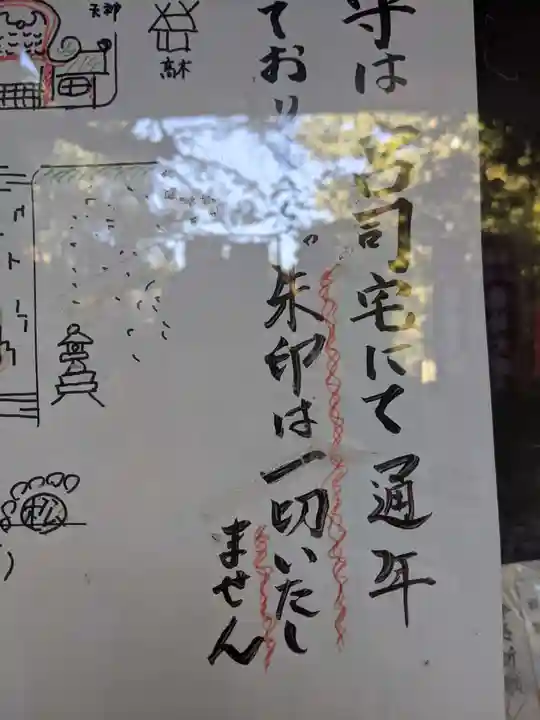 守は宮司宅にて通年
ており
朱印は一切いたし
ません
天神
高木
松